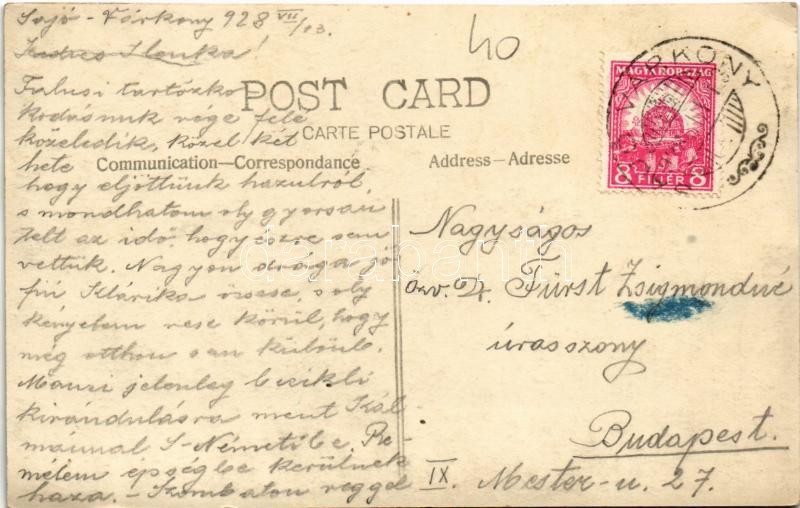 Sajó-Várkony 928 VII/13.
Kedves Ilonka!
Falusi tartózko
kodásunk vége felé
közeledik, közel két
hete
hogy eljöttünk hazulról,
s mondhatom oly gyorsan
telt az idő, hogy észre sem
vettük. Nagyon drága jó
fiú Klárika öcscse, s oly
kényelem vesz körül, hogy
még otthon sem különb.
Manzi jelenleg bicikli
kirándulásra ment Kál
mánnal S-Németibe. Re-
mélem épségbe kerülnek
haza. - Szombaton reggel
40
POST CARD
CARTE POSTALE
Communication—Correspondance
Address—Adresse
MAGYARORSZÁG
8 FILLÉR 8
VÁRKONY
Nagyságos
özv. Dr. Fürst Zsigmondné
úrasszony
Budapest.
IX. Mester-u. 27.
darabanth